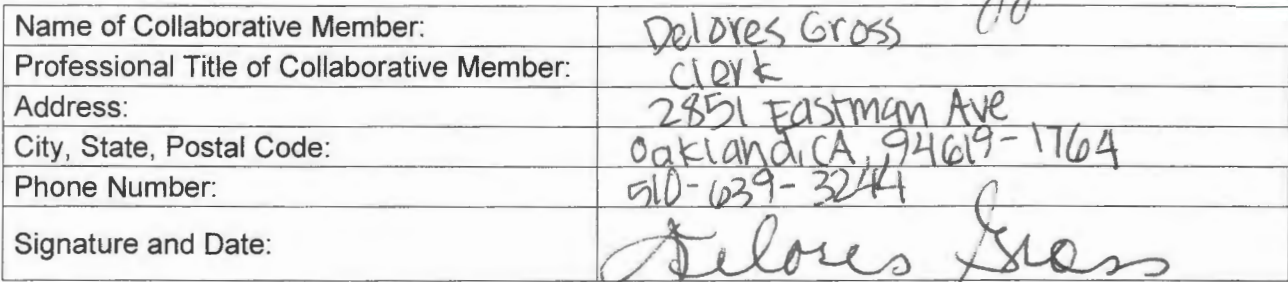 Name of Collaborative Member: Delores Gross
Professional Title of Collaborative Member: Clerk
Address: 2851 Eastman Ave
City, State, Postal Code: Oakland, CA, 94619-1764
Phone Number: 510-639-3244
Signature and Date: Delores Gross